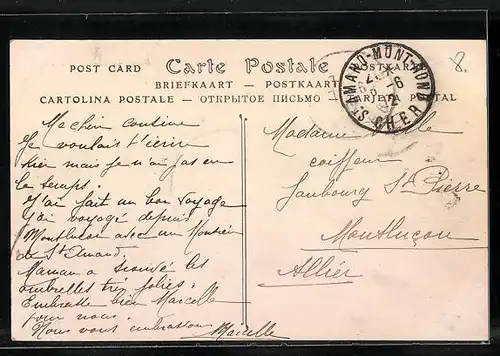 POST CARD Carte Postale POSTKARTE
BRIEFKAART – POSTKAART
CARTOLINA POSTALE – ОТКРЫТОЕ ПИСЬМО – TARJETA POSTAL
8.
AMAND-MONT-ROND
CHER
Ma chère cousine
Je voulais t'écrire
hier mais je n'ai pas eu
le temps.
J'ai fait un bon voyage
J'ai voyagé depuis
Montluçon avec un Monsieur
de St Amand.
Maman a trouvé les
ombrelles très jolies.
Embrasse bien Marcelle
pour nous.
Nous vous embrassons
Marcelle
Madame
coiffeur
Faubourg St Pierre
Montluçon
Allier